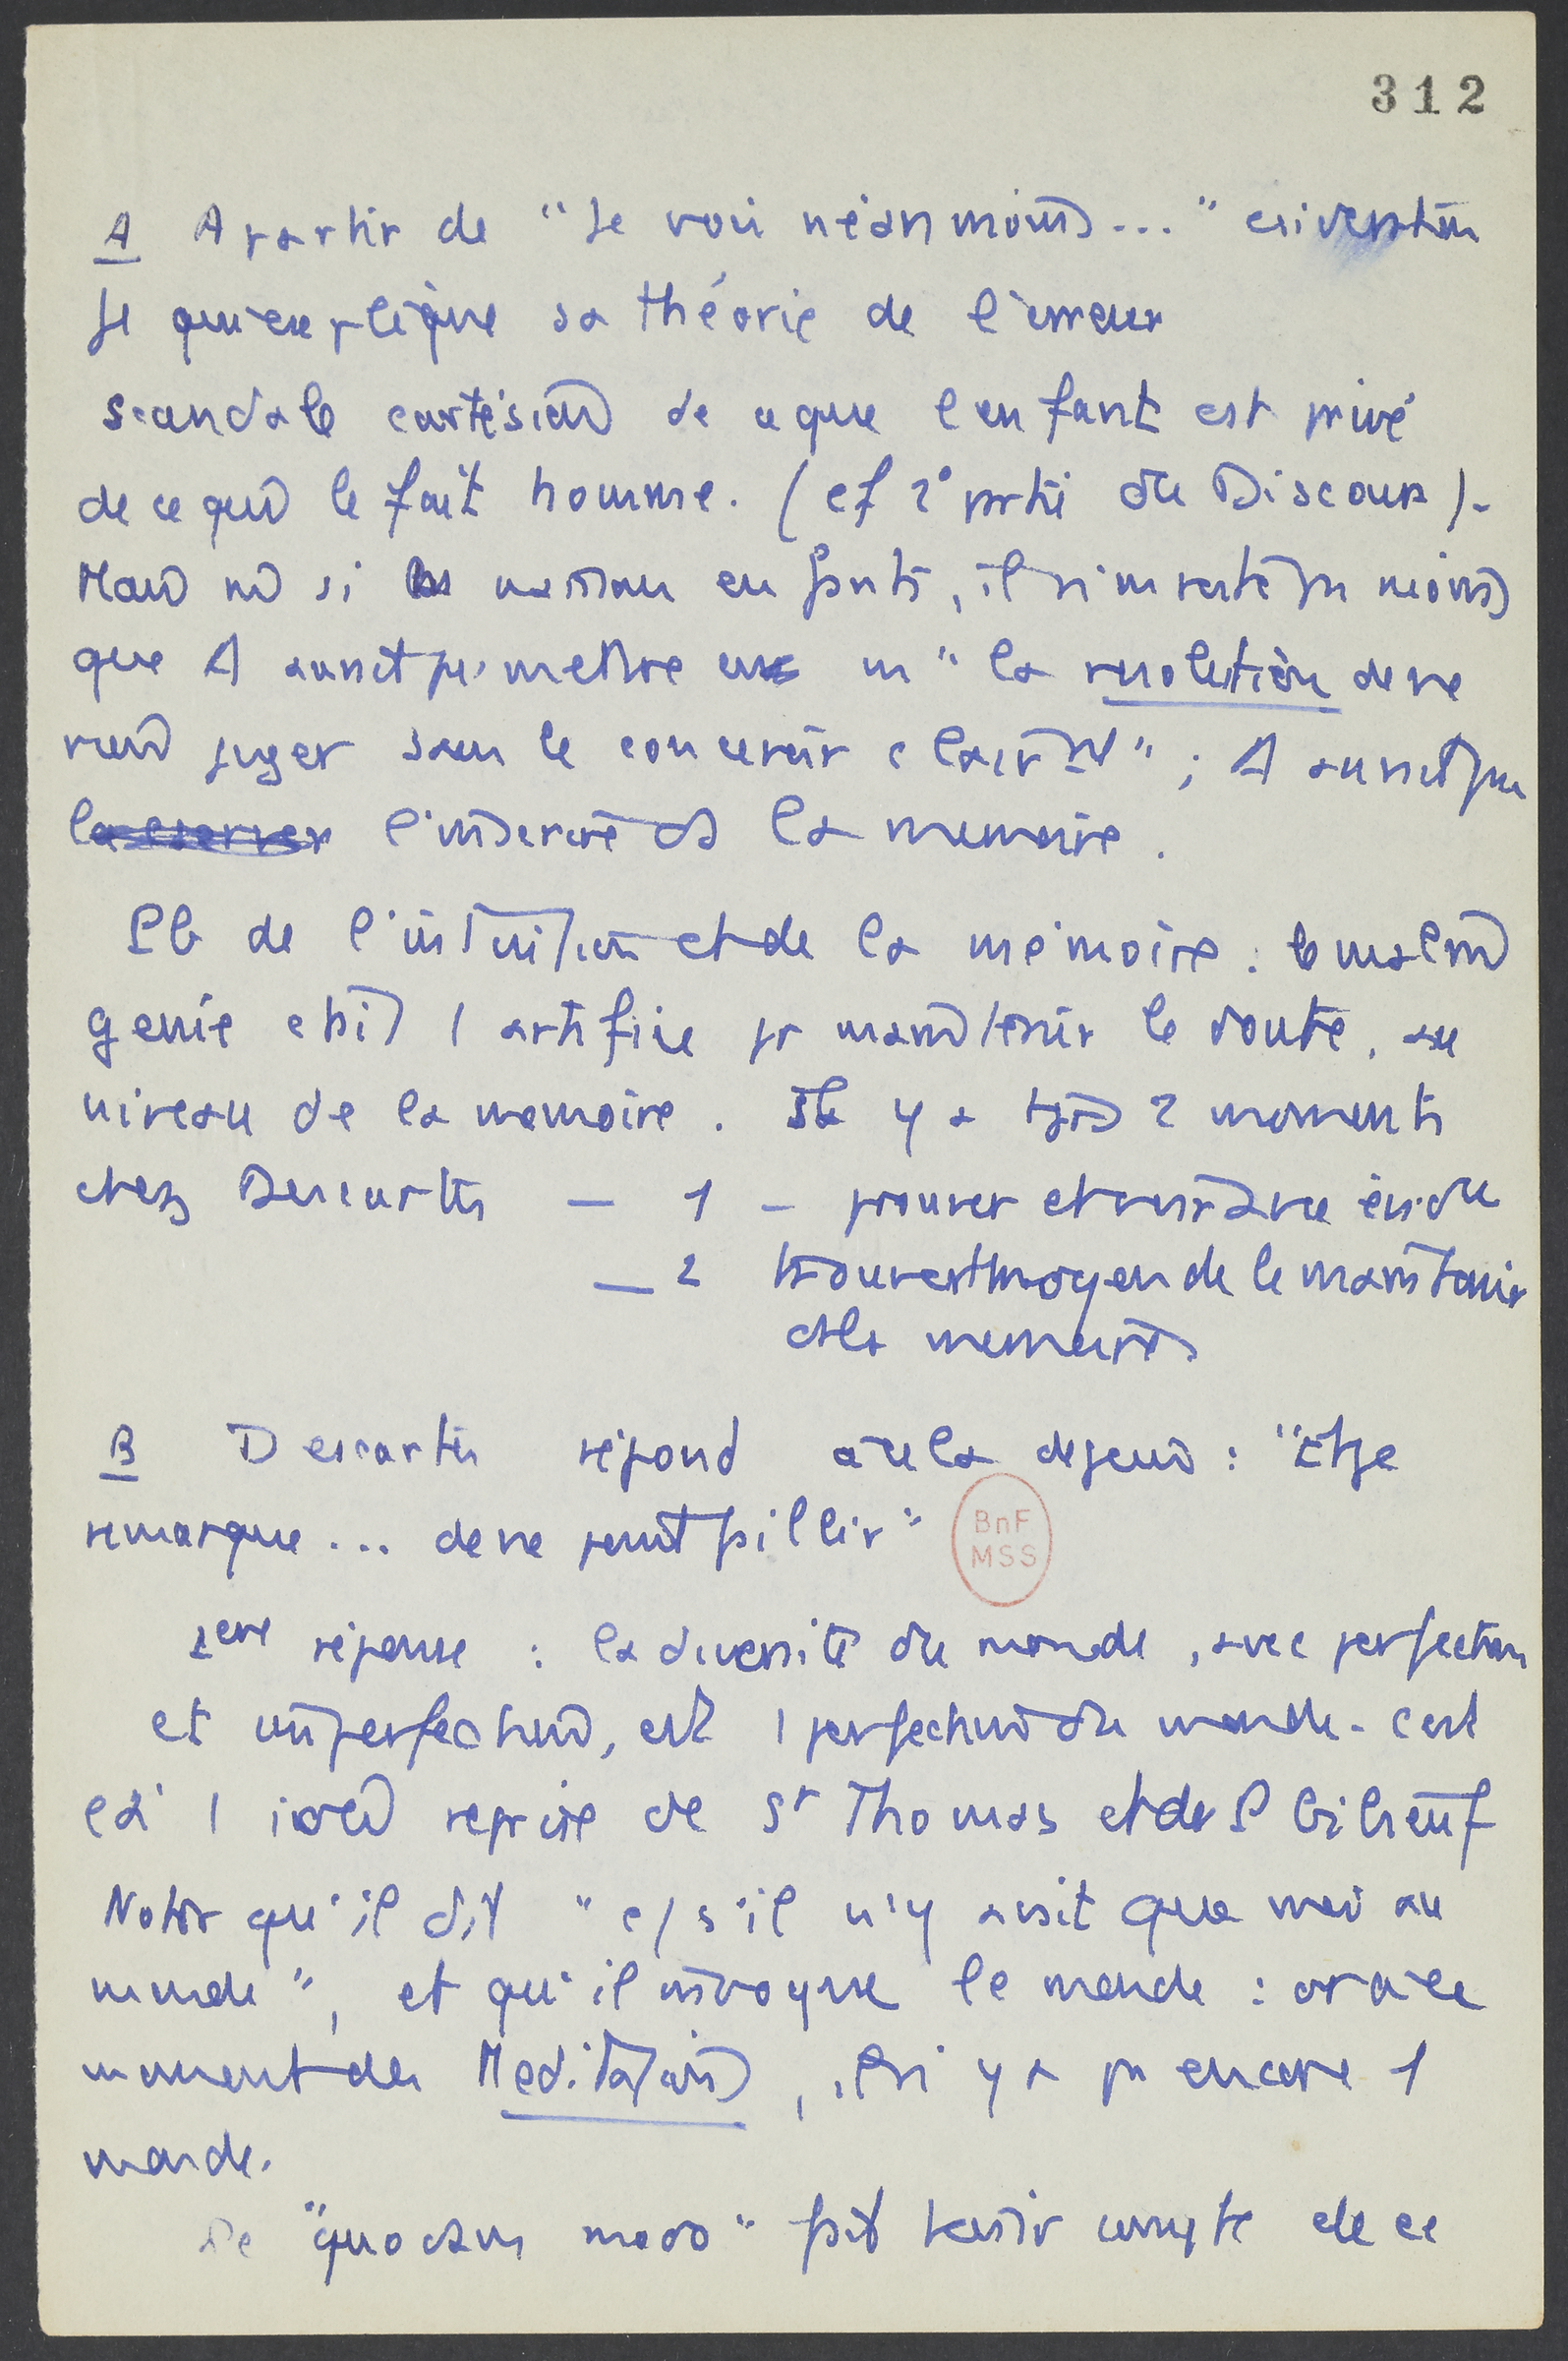 312
A A partir de "Je vois néanmoins..."
qui explique sa théorie de l'erreur
scandale cartésien de ce que l'enfant est privé
de ce qui le fait homme. (cf 2° partie du Discours).
Mais ns si ns naissons enfants, il n'en reste pas moins
que D aurait pu mettre en ns "la résolution de ne
rien juger sans le concevoir clairt" ; D aurait pu
l'inscrire ds la mémoire.
Pb de l'intuition et de la mémoire : le malin
génie était 1 artifice pr maintenir le doute, au
niveau de la mémoire. Il y a tjrs 2 moments
chez Descartes – 1 – prouver et
– 2 trouver moyen de le maintenir
ds la mémoire
B Descartes répond à cela depuis : "Et je
remarque... de ne point faillir"
1ere réponse : la diversité du monde, avec perfection
et imperfection, est 1 perfection du monde - c'est
là 1 idée reprise de St Thomas et de P Gibieuf
Noter qu'il dit "c/ s'il n'y avait que moi au
monde", et qu'il invoque le monde : or à ce
moment des Méditations, il n'y a pas encore 1
monde.
Le "quodam modo" fait tenir compte de ce
BnF
MSS